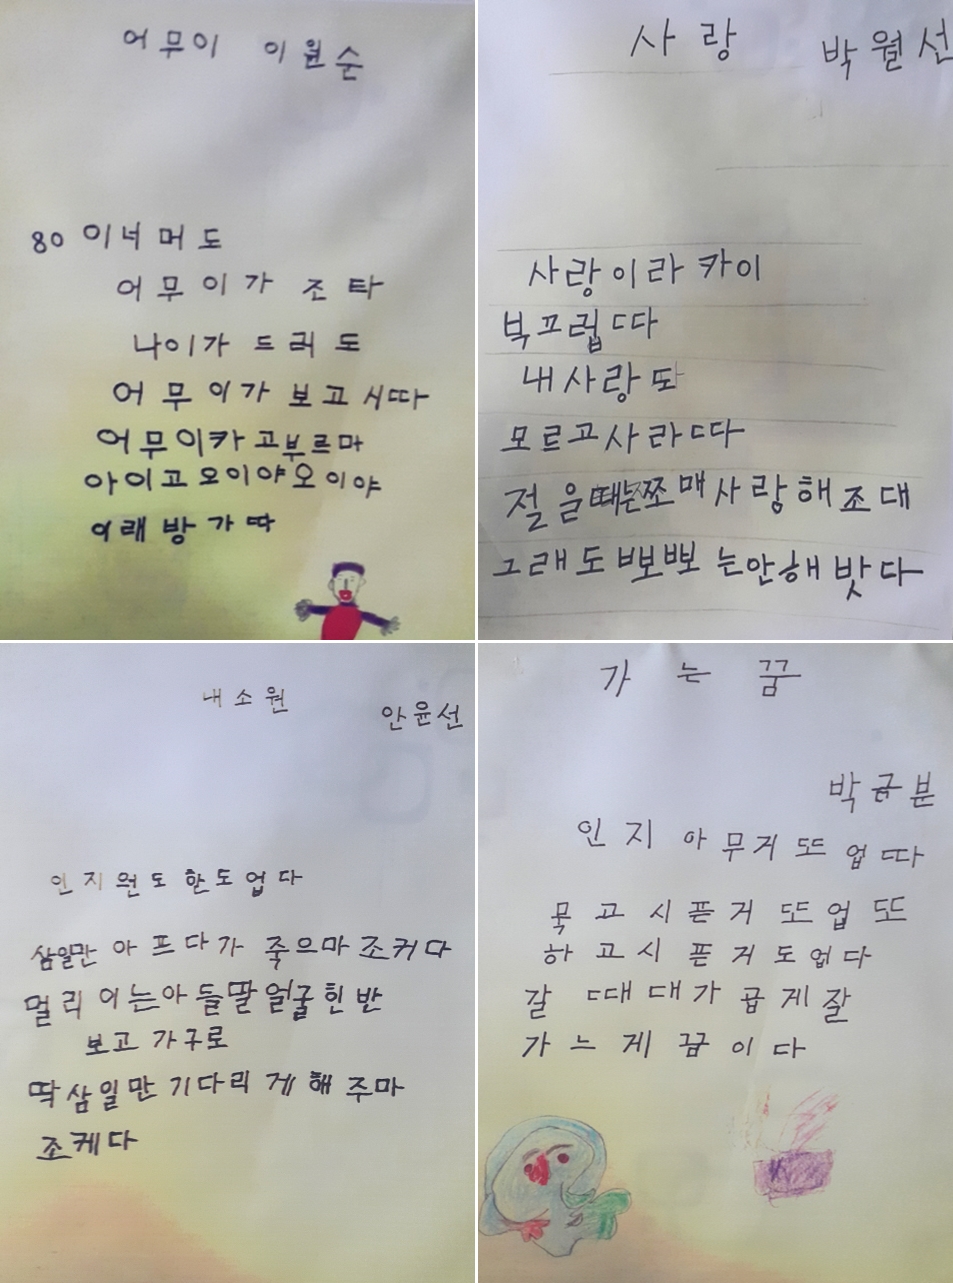 어무이 이원순
80이너머도
어무이가 조타
나이가 드러도
어무이가 보고시따
어무이카고부르마
아이고오이야오이야
이래방가따
사랑
박월선
사랑이라카이
북끄럽따
내사랑도
모르고사라따
절을때는쪼매사랑해조대
그래도뽀뽀는안해밧다
내소원
안윤선
인지원도한도업다
삼일만아프다가죽으마조켜다
멀리이는아들딸얼굴힌반
보고가구로
딱삼일만기다리게해주마
조케다
가는꿈
박금분
인지아무거또업따
묵고시픈거또업또
하고시픈거도업다
갈때대가곱게잘
가느게꿈이다